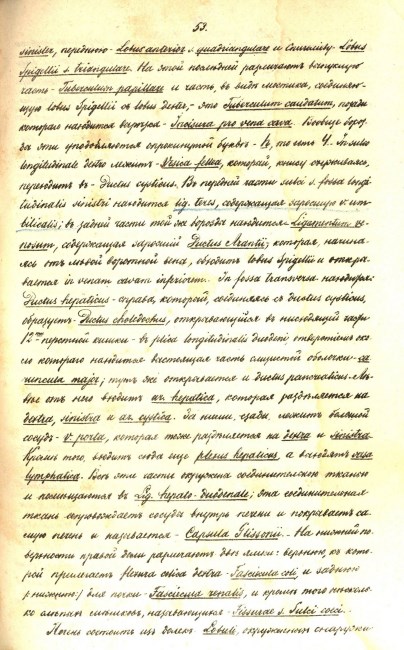 53.
sinister, переднюю - Lobus anterior s. quadrangulare и Спигелиеву - Lobus
Spigelii s. triangulare. На этой последней различают выпуклую
часть - Tuberculum papillare и часть, въ видѣ мостика, соединяю-
щую lobus Spigelii съ lobus dexter, - это Tuberculum caudatum, позади
котораго находится вырѣзка - Incisura pro vena cava. Вообще бороз-
ды эти уподобляются опрокинутой буквѣ - то есть 4. In sulco
longitudinale dextro лежитъ - Vesica fellea, которая, книзу суживаясь,
переходитъ въ - Ductus cysticus. Въ передней части sulci s. fossa longi-
tudinalis sinistri находится lig. teres, содержащая заросшую v. um-
bilicalis; въ задней части той же борозды находится - Ligamentum ve-
nosum, содержащая заросшій Ductus Arantii; которая, начина-
ясь отъ лѣвой воротной вены, обходитъ lobus Spigelii и откры-
вается in venam cavam inferiorem. In fossa transversa находится:
Ductus hepaticus - справа, который, соединяясь съ ductus cysticus,
образуетъ - Ductus choledochus, открывающійся въ нисходящей части
12ти перстной кишки - въ plica longitudinalis duodeni, отверстіе око-
ло котораго находится выстоящая часть слизистой оболочки - ca-
runcula major; тутъ же открывается и ductus pancreaticus. Лѣ-
вѣе отъ него входитъ ar. hepatica, которая раздѣляется на
dextra, sinistra и ar. cystica. За ними, сзади, лежитъ большой
сосудъ - v. porta, которая тоже раздѣляется на dextra и sinistra.
Кромѣ того, входитъ сюда еще plexus hepaticus, а выходятъ vasa
lymphatica. Всѣ эти части окружены соединительною тканью
и помѣщаются въ Lig. hepato-duodenale; эта соединительная
ткань сопровождаетъ сосуды внутрь печени и покрываетъ са-
мую печень и называется - Capsula Glissonii. На нижней по-
верхности правой доли различаютъ двѣ ямки: переднюю, къ кото-
рой прилегаетъ flexura colica dextra - Fasciicula coli, и заднюю
(нижнюю) для почки - Fasciicula renalis, и кромѣ того нѣсколь-
ко слѣпыхъ называющихся - Fissurae s. Sulci coeci.
Печень состоитъ изъ долекъ - Lobuli, окруженныхъ снаружи